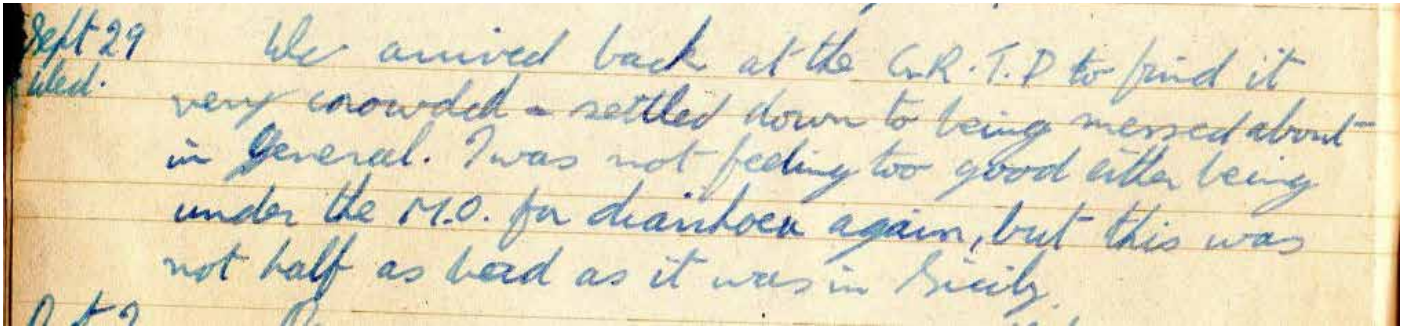 Sept 29 We arrived back at the G.R.T.D to find it
Wed. very crowded & settled down to being messed about
in General. I was not feeling too good either being
under the M.O. for diarrhoea again, but this was
not half as bad as it was in Sicily.
Oct 2